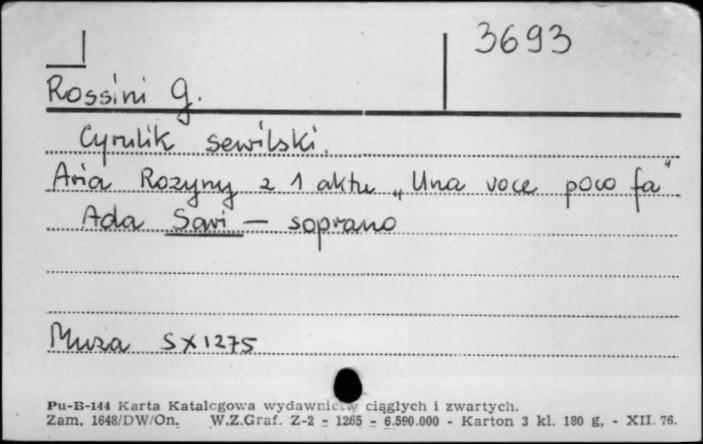 3693
Rossini G.
Cyrulik sewilski.
Aria Rozyny z 1 aktu „Una voce poco fa"
Ada Sari — soprano
Muza SX1275
Pu-B-144 Karta Katalogowa wydawnictw ciągłych i zwartych.
Zam. 1648/DW/On. W.Z.Graf. Z-2 - 1265 - 6.590.000 - Karton 3 kl. 180 g, - XII. 76.